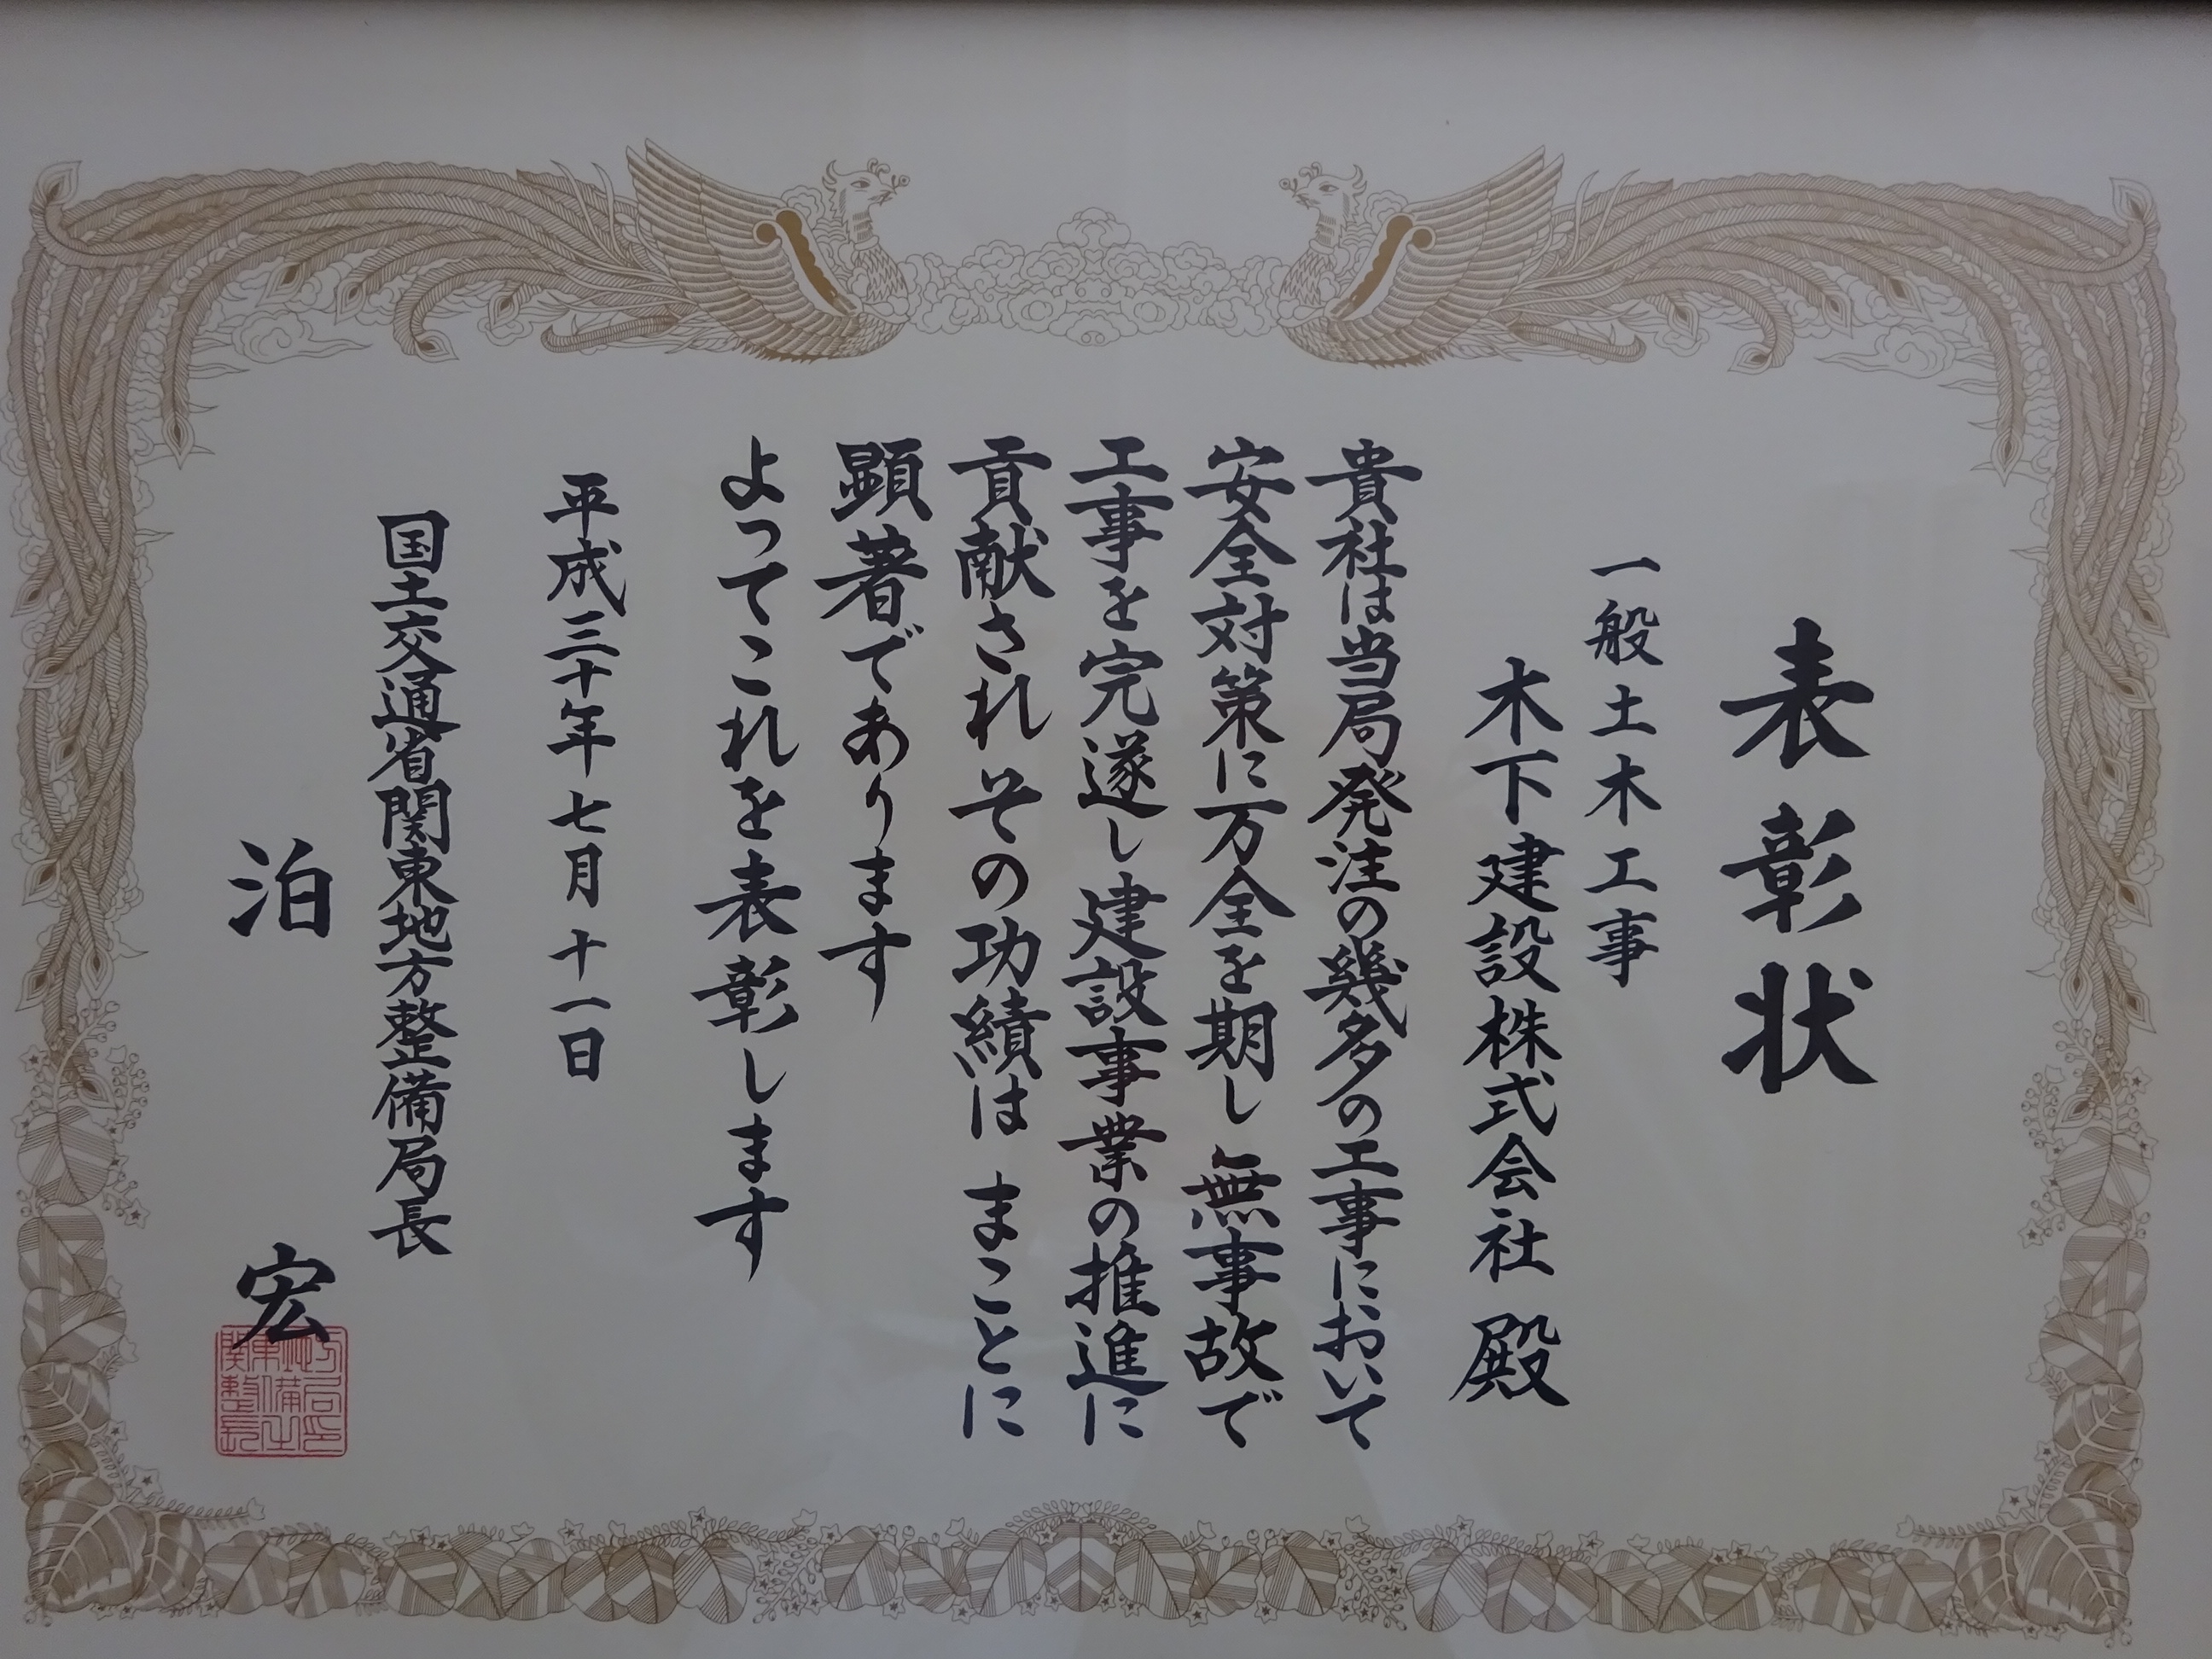 表彰状
一般土木工事
木下建設株式会社 殿
貴社は当局発注の幾多の工事において
安全対策に万全を期し 無事故で
工事を完遂し 建設事業の推進に
貢献され その功績は まことに
顕著であります
よってこれを表彰します
平成三十年七月十一日
国土交通省関東地方整備局長
泊 宏